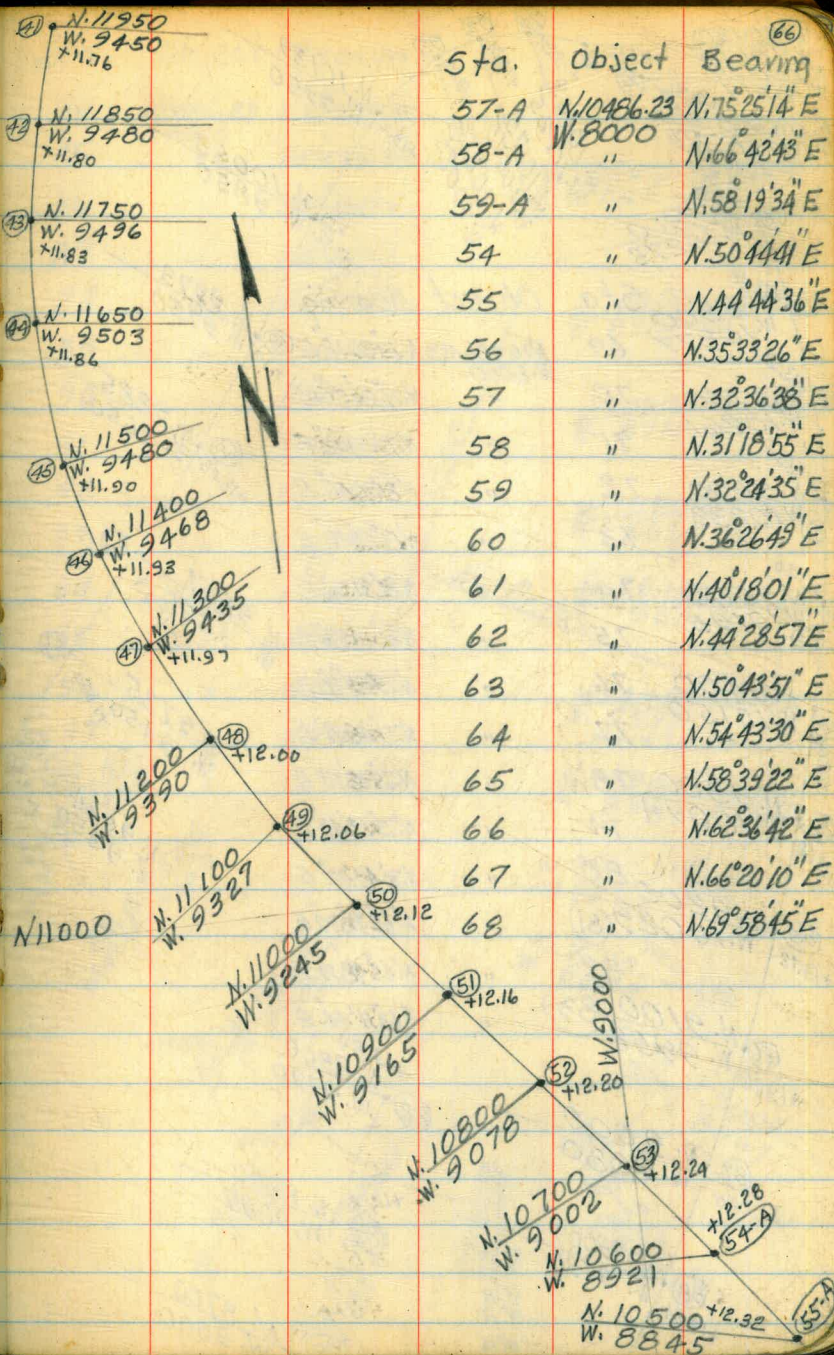 66
Sta. Object Bearing
57-A N.10486.23 N.75°25'14" E
W.8000
58-A " N.66°42'43" E
59-A " N.58°19'34" E
54 " N.50°44'41" E
55 " N.44°44'36" E
56 " N.35°33'26" E
57 " N.32°36'38" E
58 " N.31°18'55" E
59 " N.32°24'35" E
60 " N.36°26'49" E
61 " N.40°18'01" E
62 " N.44°28'57" E
63 " N.50°43'51" E
64 " N.54°43'30" E
65 " N.58°39'22" E
66 " N.62°36'42" E
67 " N.66°20'10" E
68 " N.69°58'45" E
41 N. 11950
W. 9450
+11.76
42 N. 11850
W. 9480
+11.80
43 N. 11750
W. 9496
+11.83
44 N. 11650
W. 9503
+11.86
N
45 N. 11500
W. 9480
+11.90
46 N. 11400
W. 9468
+11.93
47 N. 11300
W. 9435
+11.97
48 +12.00
N. 11200
W. 9390
49 +12.06
N. 11100
W. 9327
50 +12.12
N11000
N. 11000
W. 9245
51 +12.16
N. 10900
W. 9165
W.9000
52 +12.20
N. 10800
W. 9078
53 +12.24
N. 10700
W. 9002
+12.28
54-A
N. 10600
W. 8921
55-A
N. 10500 +12.32
W. 8845